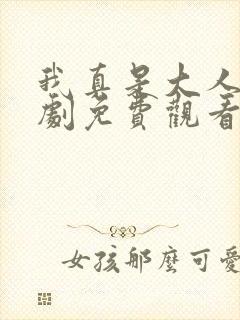 我真是大人
劇免費觀看
女孩那麼可愛